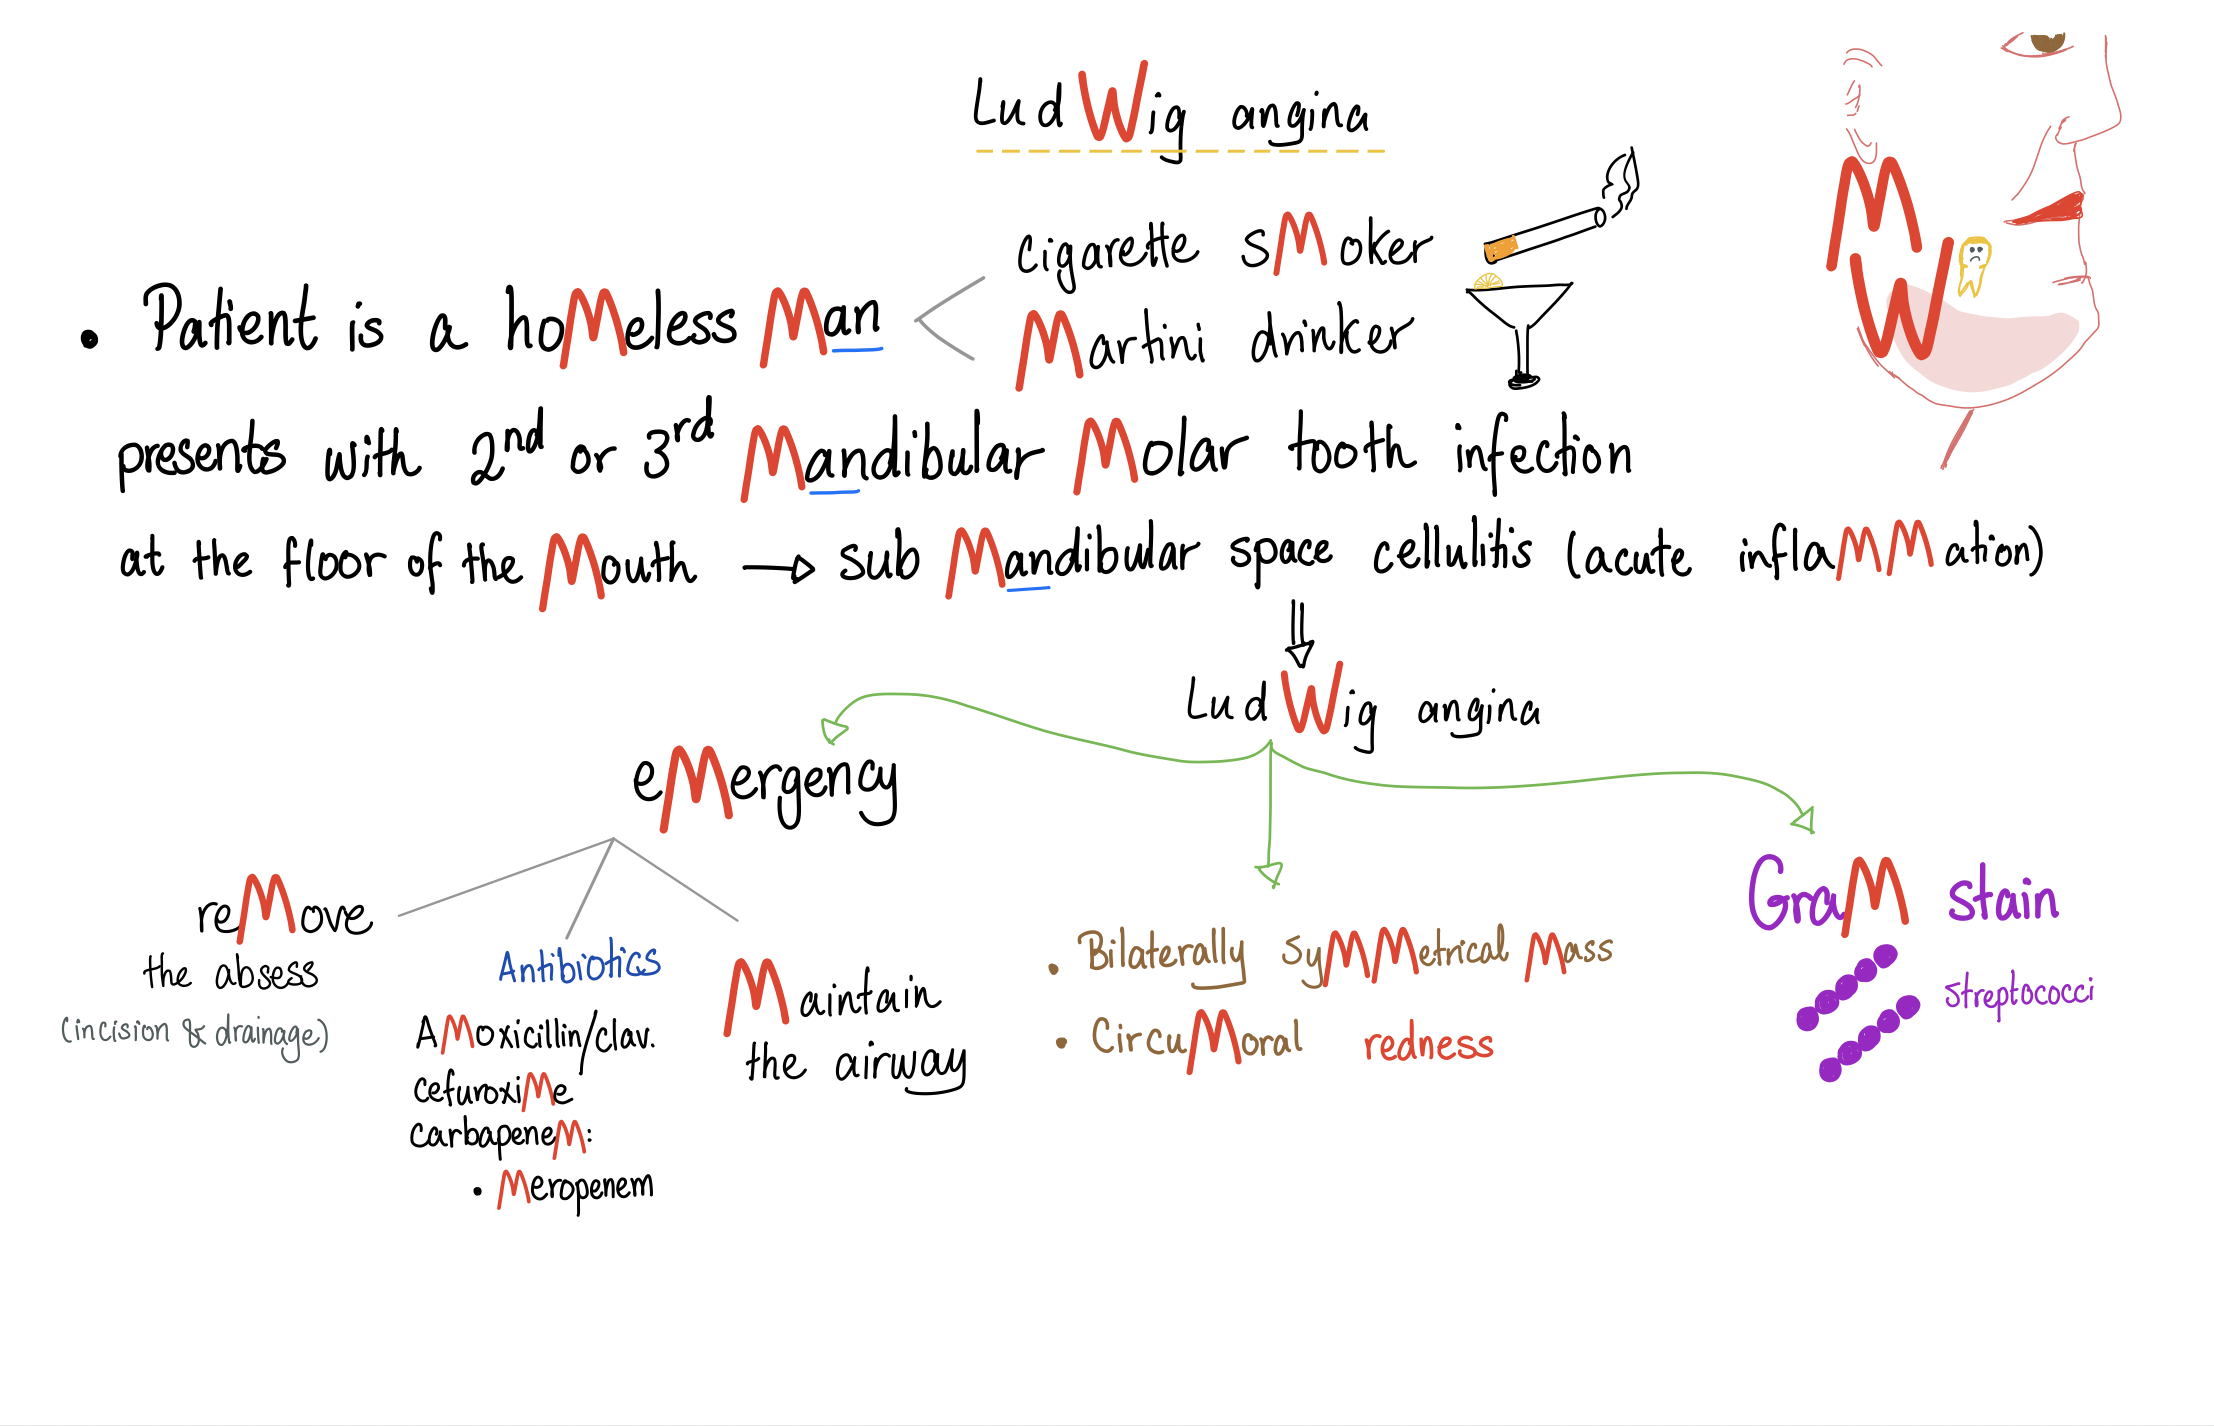 LudWig angina
cigarette sMoker
• Patient is a hoMeless Man
Martini drinker
presents with 2nd or 3rd Mandibular Molar tooth infection
at the floor of the Mouth → sub Mandibular space cellulitis (acute inflaMMation)
LudWig angina
eMergency
reMove
the absess
(incision & drainage)
Antibiotics
AMoxicillin/clav.
cefuroxiMe
carbapeneM:
• Meropenem
Maintain
the airway
• Bilaterally SyMMetrical Mass
• CircuMoral redness
GraM stain
streptococci
M
W